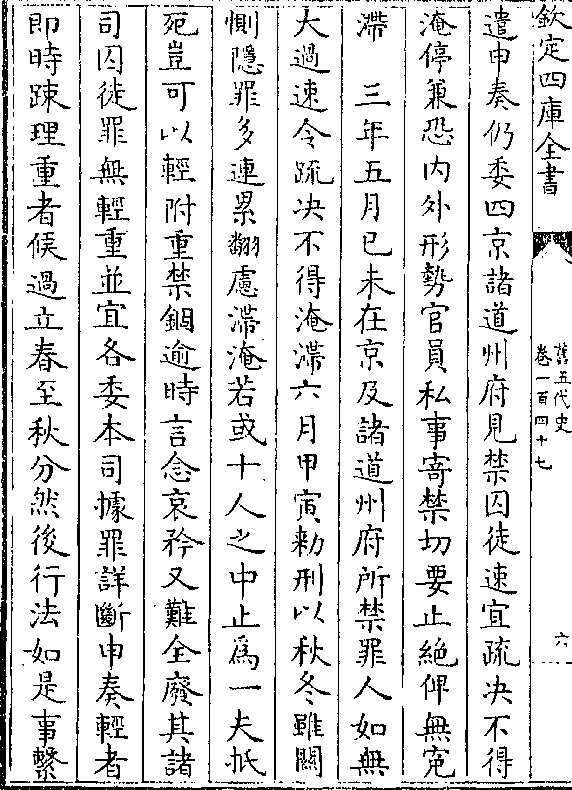 欽定四庫全書
舊五代史
卷一百四十七
六
遣申奏仍委四京諸道州府見禁囚徒速宜疏决不得
淹停兼恐内外形勢官員私事寄禁切要止絶俾無寃
滯　三年五月已未在京及諸道州府所禁罪人如無
大過速令疏决不得淹滯六月甲寅勑刑以秋冬雖關
惻隱罪多連累翻慮滯淹若或十人之中止爲一夫抵
死豈可以輕附重禁錮逾時言念哀矜又難全廢其諸
司囚徒罪無輕重並宜各委本司據罪詳斷申奏輕者
即時踈理重者候過立春至秋分然後行法如是事繫